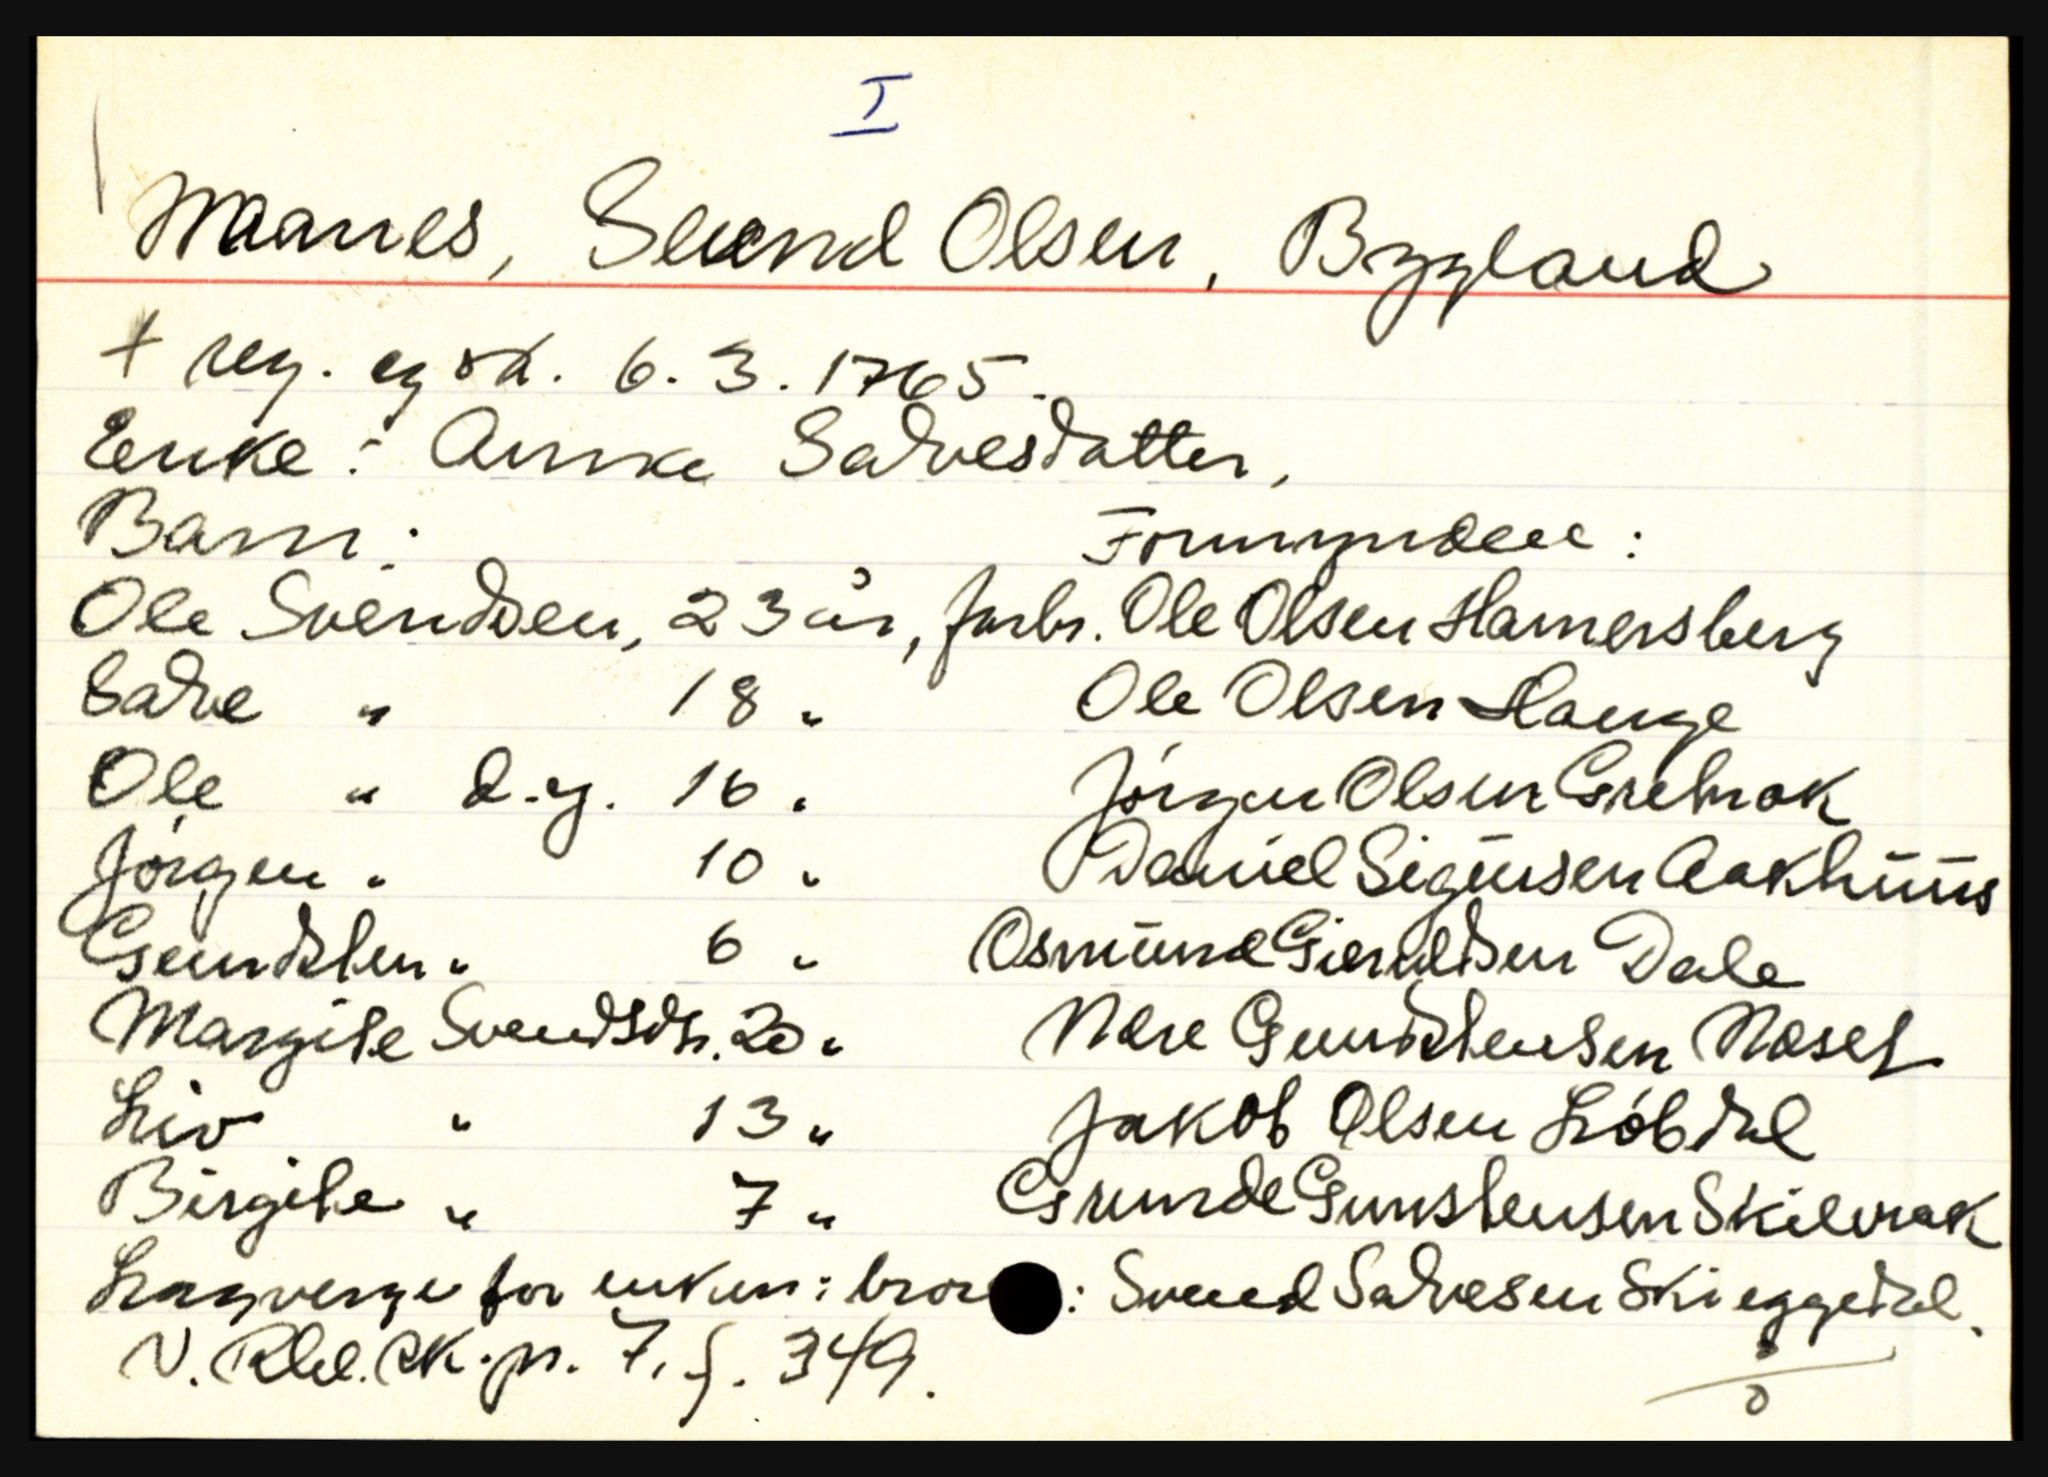 I
Maanes, Svend Olsen, Bygland
† reg. og sk. 6.3.1765.
Enke: Anne Salvesdatter,
Barn: Formyndere:
Ole Svendsen, 23 år, farbr. Ole Olsen Hamersberg
Salve " 18 " Ole Olsen Hauge
Ole " d.y. 16 " Jórgen Olsen Grehrok
Jórgen " 10 " Daniel Sigursen Aakhuus
Gundsten " 6 " Osmund Gieruldsen Dale
Margite Svendsdtr. 20 " Nere Gundstensen Neset
Liv " 13 " Jakob Olsen Lóbdal
Birgite " 7 " Gunde Gunstensen Skilvrak
Lagverge for enken: bror : Svend Salvesen Skieggedal.
N. Rbd. sk. pr. 7, f. 349.